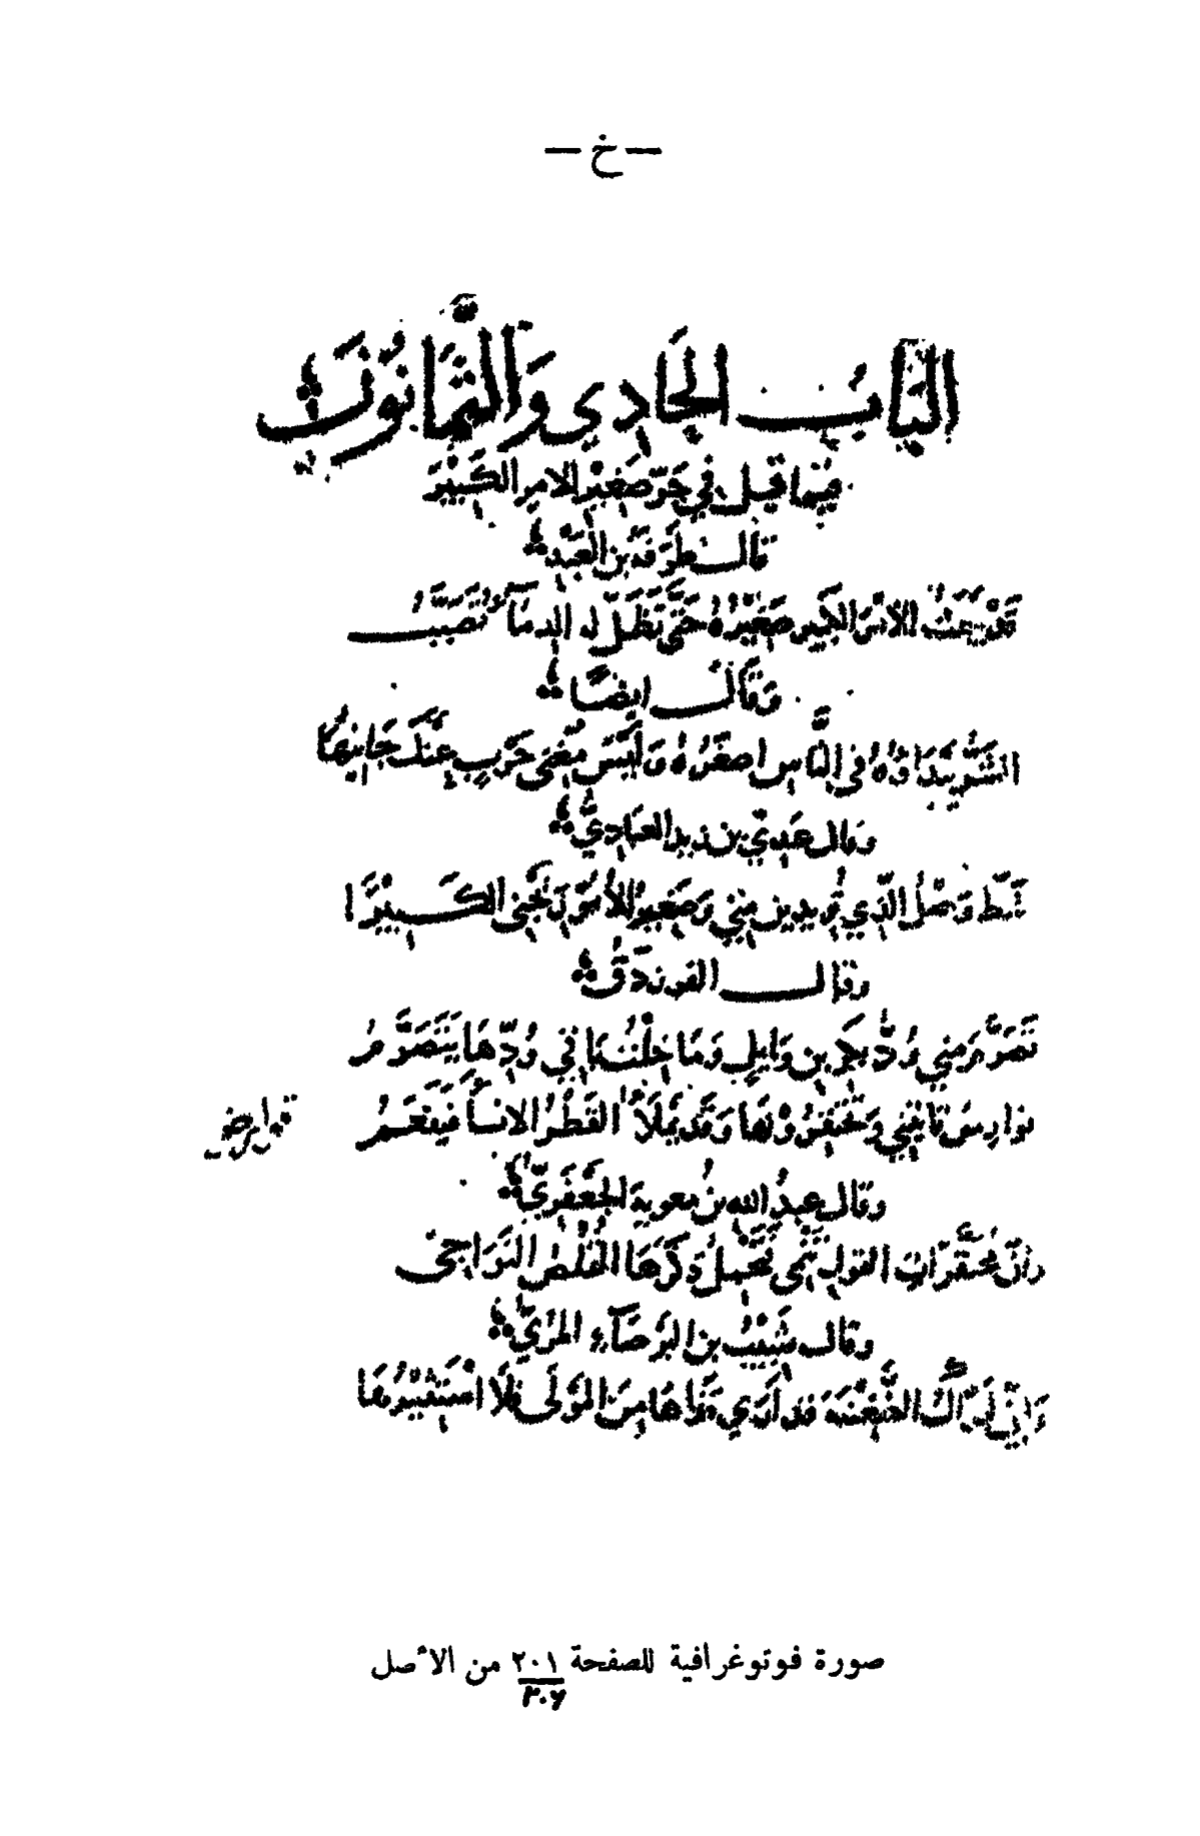 — خ —
البَابُ الحَادِي وَالثَّمَانُونَ
فِيمَا قِيلَ فِي جَرِّ صَغِيْرِ الامرِ الكَبِيْرَ
قال طَرَفَةُ بن العَبْدِ
قَدْ يَبْعَثُ الامْرَ الكَبِيرَ صَغِيْرُهُ حَتَّى تَظَلَّ له الدِمَآءُ تَصَبَّبُ
وَقَالَ ايضًا
الشَّرُّ يَبْدَاؤُهُ فِي النَّاسِ اصغَرُهُ وَلَيْسَ مُغْنِي حَرْبٍ عَنْكَ جَانِيْهَا
وَقال عَدِيّ بن زيد العبَادِيُّ
شَطَّ وَصْلُ الَّذِي تُرِيدِينَ مِنِّي وَصَغِيرُ الأُمُورِ يَجْنِي الكَبِيْرَا
وقال الفرزدَقُ
تَصَرَّمَ مِنِي وُدُّ بكرِ بن وَايلٍ وَمَا خِلْتُ بَاقِي وُدِّهَا يَتَصَرَّمُ
قوارِصُ تَاتِيْنِي وَتَحْتَقِرُوْنَهَا وَقَد يَمْلَأُ القَطْرُ الانَآءَ فَيَفْعَمُ
قوارض
وقال عبدُ الله بنُ معوية الجَعْفَرِيُّ
وانّ مُحَقَّرَاتِ القولِ تَنْمِى
وقال شَبِيْبُ بن البَرْصَآءِ المُرّيُّ
وَاِنِّي لَتَرَّاكُ الضَّغِيْنَةِ قد اَرَى ثَرَاهَا مِنَ المَوْلَى فَلَا اسْتَثِيْرُهَا
صورة فوتوغرافية للصفحة ٢٠١ من الأصل
٣٠٧